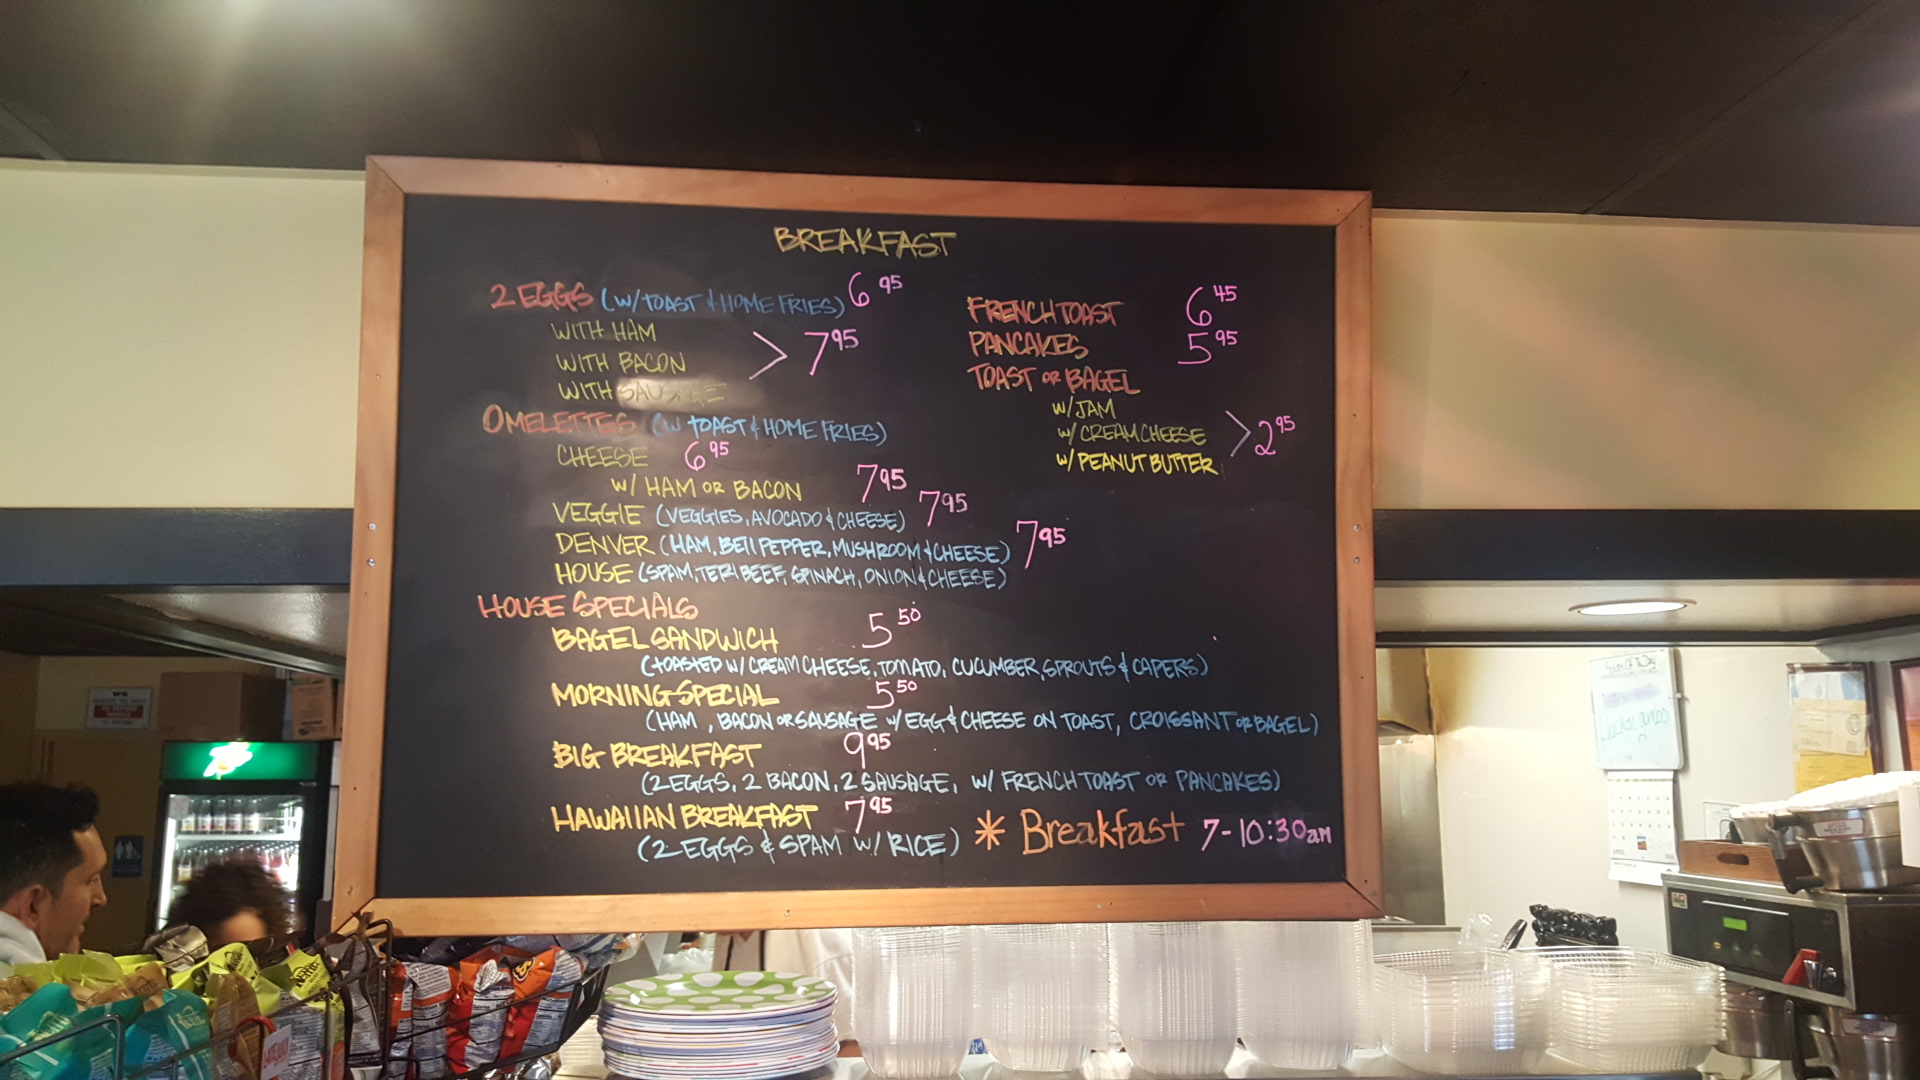 BREAKFAST
2 EGGS (W/TOAST & HOME FRIES) 6 95
WITH HAM
WITH BACON > 7 95
WITH SAUSAGE
OMELETTES (W/ TOAST & HOME FRIES)
CHEESE 6 95
W/ HAM OR BACON 7 95
VEGGIE (VEGGIES, AVOCADO & CHEESE) 7 95
DENVER (HAM, BELL PEPPER, MUSHROOM & CHEESE) 7 95
HOUSE (SPAM, TERI BEEF, SPINACH, ONION & CHEESE)
HOUSE SPECIALS
BAGEL SANDWICH 5 50
(TOASTED W/ CREAM CHEESE, TOMATO, CUCUMBER, SPROUTS & CAPERS)
MORNING SPECIAL 5 50
(HAM, BACON OR SAUSAGE W/ EGG & CHEESE ON TOAST, CROISSANT OR BAGEL)
BIG BREAKFAST 9 95
(2 EGGS, 2 BACON, 2 SAUSAGE, W/ FRENCH TOAST OR PANCAKES)
HAWAIIAN BREAKFAST 7 95
(2 EGGS & SPAM W/ RICE)
FRENCH TOAST 6 45
PANCAKES 5 95
TOAST OR BAGEL
W/ JAM
W/ CREAM CHEESE > 2 95
W/ PEANUT BUTTER
* Breakfast 7-10:30am